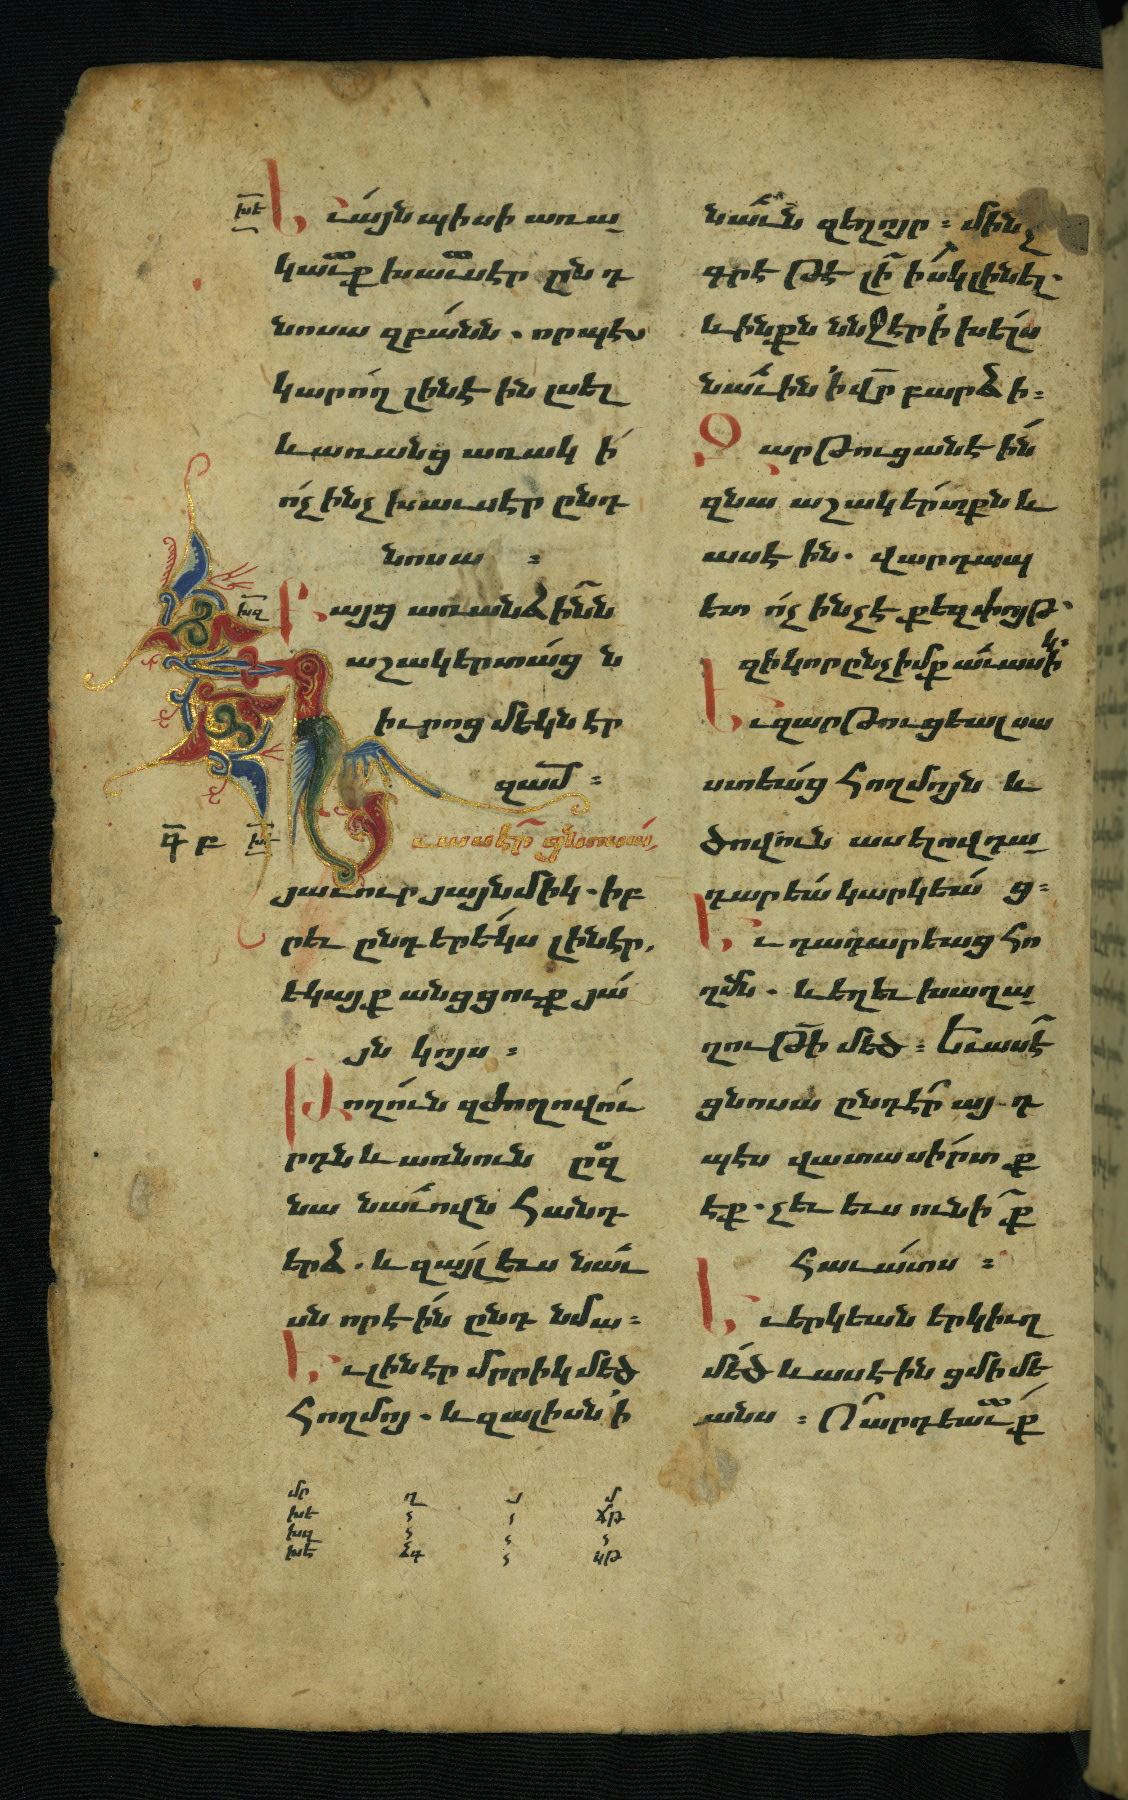 խե Եւ այնպիսի առա
կաւք խաւսէր ընդ
նոսա զբանն. որպէս
կարող լինէին լսել
և առանց առակ ի
ոչ ինչ խաւսէր ընդ
նոսա ։
խզ Բայց առանձինն
աշակերտաց ն
իւրոց մեկնէր
զամ ։
գ բ խէ Եւ ասէր ցնոսա
յաւուր յայնմիկ. իբ
րեւ ընդ երեկս լինէր,
եկայք անցցուք յա
յն կոյս ։
Թողուն զժողովու
րդն և առնուն ըզ
նա նաւովն հանդ
երձ. և զայլ եւս նաւ
սն որ էին ընդ նմա ։
Եւ լինէր մրրիկ մեծ
հողմոյ. և զալիսն ի
նաւն զեղոյր ։ մինչ
գրէ թէ լի իսկ լինել.
և ինքն ննջէր ի խելս
նաւին ի վր բարձի ։
Զարթուցանէին
զնա աշակերտքն և
ասէին. վարդապ
ետ ոչ ինչ է քեզ փոյթ.
զի կորընչիմք աւասիկ ։
Եւ զարթուցեալ սա
ստեաց հողմոյն և
ծովուն ասելով դա
դարեա կարկեա ց ։
Եւ դադարեաց հո
ղմն. և եղեւ խաղա
ղութի մեծ ։ Եւ ասէ
ցնոսա ընդէր այդ
պէս վատասիրտք
էք. չեւ եւս ունիք
հաւատս ։
Եւ երկեան երկիւղ
մեծ և ասէին ցմիմե
անս ։ Ո արդեաւք
մր ղ մ
խե
խզ
խէ ձգ կթ